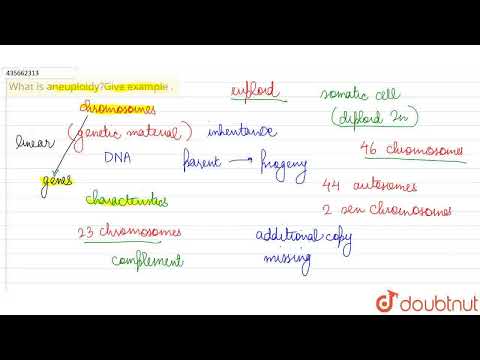 435662313
What is aneuploidy?Give example .
chromosomes
(genetic material)
linear
DNA
genes
characteristics
23 chromosomes
complement
euploid
inheritance
parent → Progeny
additional copy
missing
somatic cell
(diploid 2n)
46 chromosomes
44 autosomes
2 sex chromosomes
doubtnut